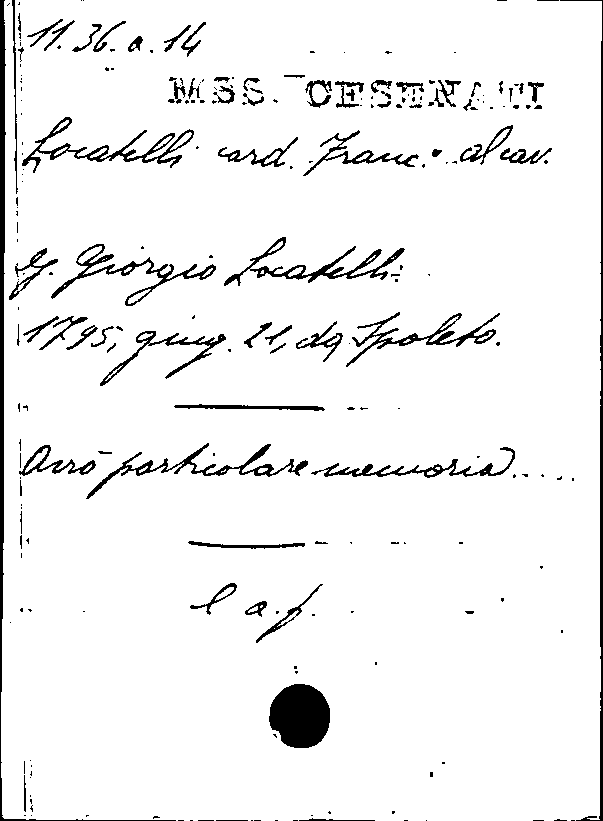 11. 36. a. 14
MSS. CESENATI
Locatelli card. Franc.° al cav.
G. Giorgio Locatelli:
1795, giug. 21, da Spoleto.
Avrò particolare memoria.....
l a.f.